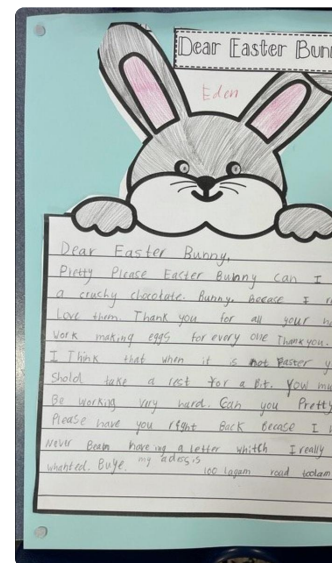 Dear Easter Bunn
Eden
Dear Easter Bunny,
Pretty Please Easter Bunny can I
a crushy clocotate. Bunny, Becase I
Love them. Thank you for all your
work making eggs for every one Thank you.
I Think that when it is not Easter y
shold take a rest for a Bit. You mu
Be working very hard. Can you Pretty
Please have you right Back Becase I
never Bean haveing a letter whitch I really
whanted. Buye. my adess is
100 lagam road